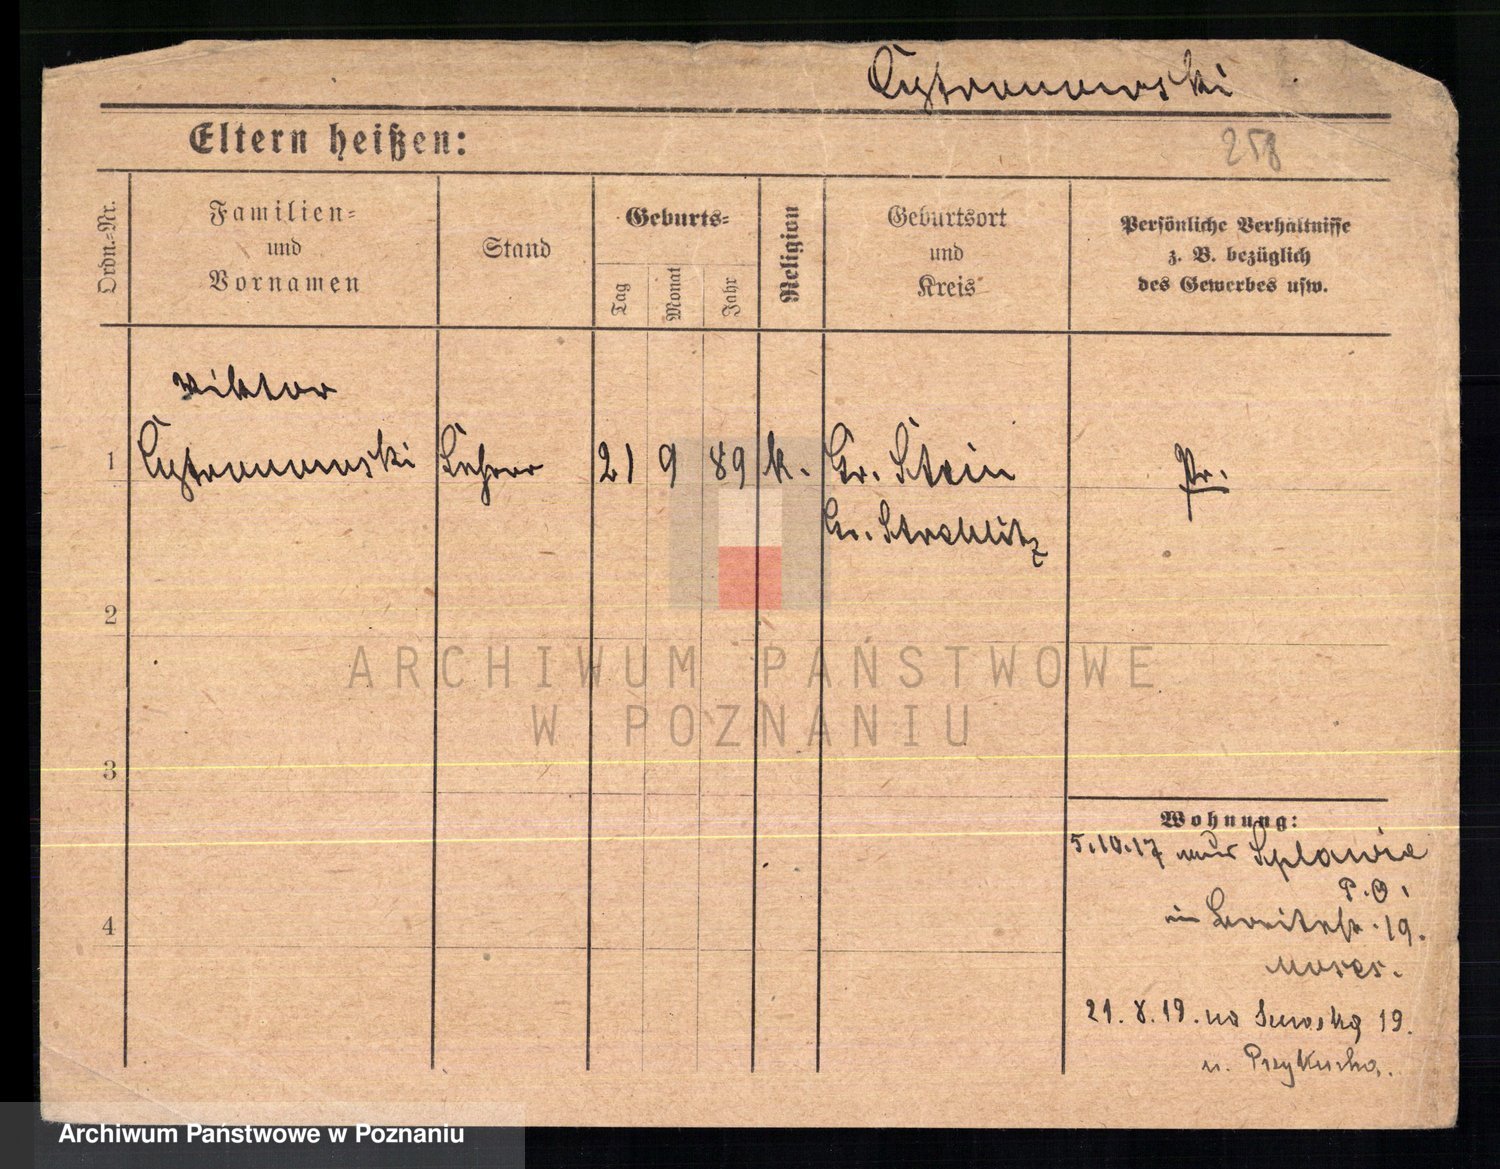 Cytronowski
Eltern heißen:
258
Ordn.-Nr.
Familien-
und
Vornamen
Stand
Geburts-
Tag
Monat
Jahr
Religion
Geburtsort
und
Kreis
Persönliche Verhältnisse
z. B. bezüglich
des Gewerbes usw.
Viktor
1 Cytronowski Lehrer 21 9 89 k. Gr. Stein Pr.
Gr. Strehlitz
2
3
4
Wohnung:
5.10.17 aus Splawie
P.O.
in Breitestr. 19.
Moses.
21.8.19. na 19.
u. Przykucka.
ARCHIWUM PAŃSTWOWE
W POZNANIU
Archiwum Państwowe w Poznaniu